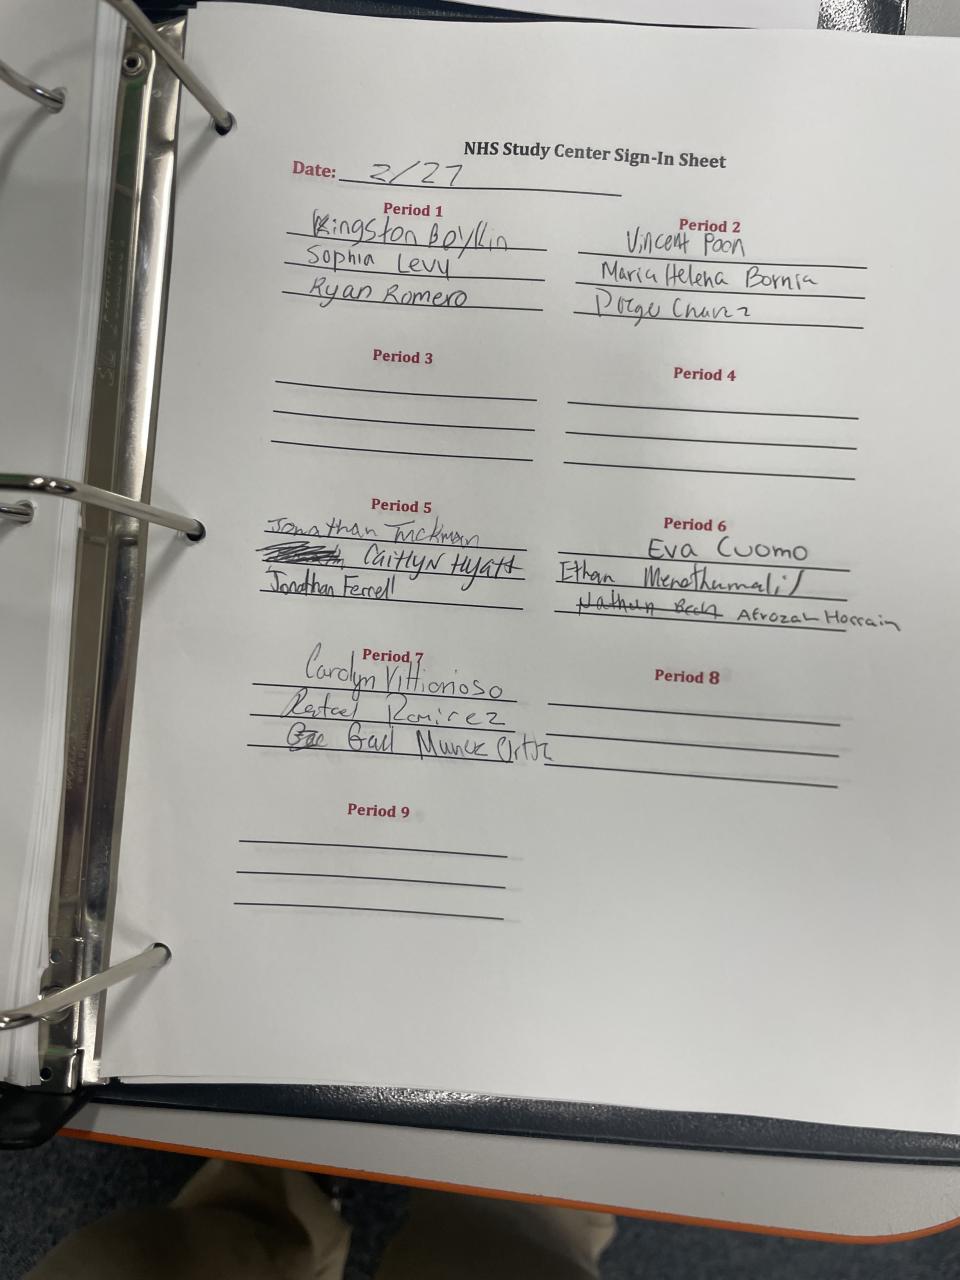 NHS Study Center Sign-In Sheet
Date: 2/27
Period 1
Kingston Boykin
Sophia Levy
Ryan Romero
Period 2
Vincent Poon
Maria Helena Bornia
Period 3
Period 4
Period 5
Jonathan Tuckman
Caitlyn Hyatt
Jonathan Ferrell
Period 6
Eva Cuomo
Ethan
Nathan Afrozah Hossain
Period 7
Carolyn
Rafael Ramirez
Period 8
Period 9